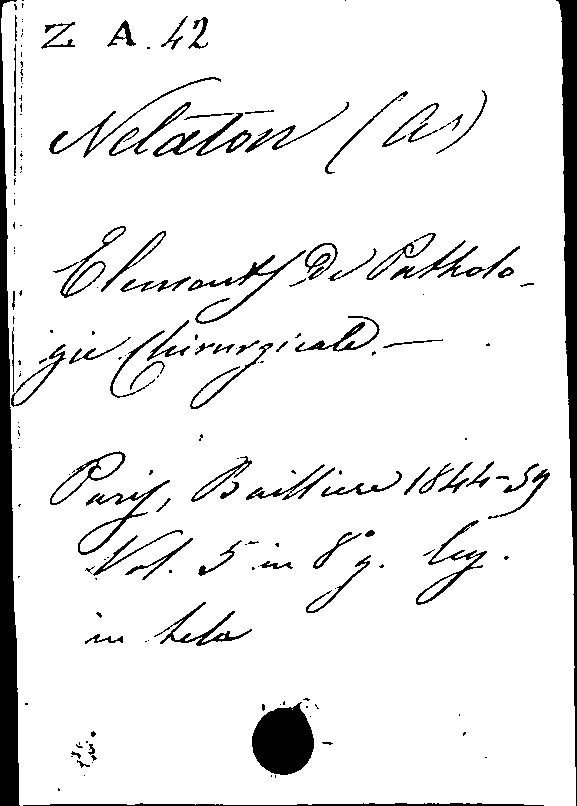 Z A. 42
Nelaton (As)
Elements De Patholo-
gie Chirurgicale. —
Paris, Bailliere 1844-59
Vol. 5 in 8° g. leg.
in tela